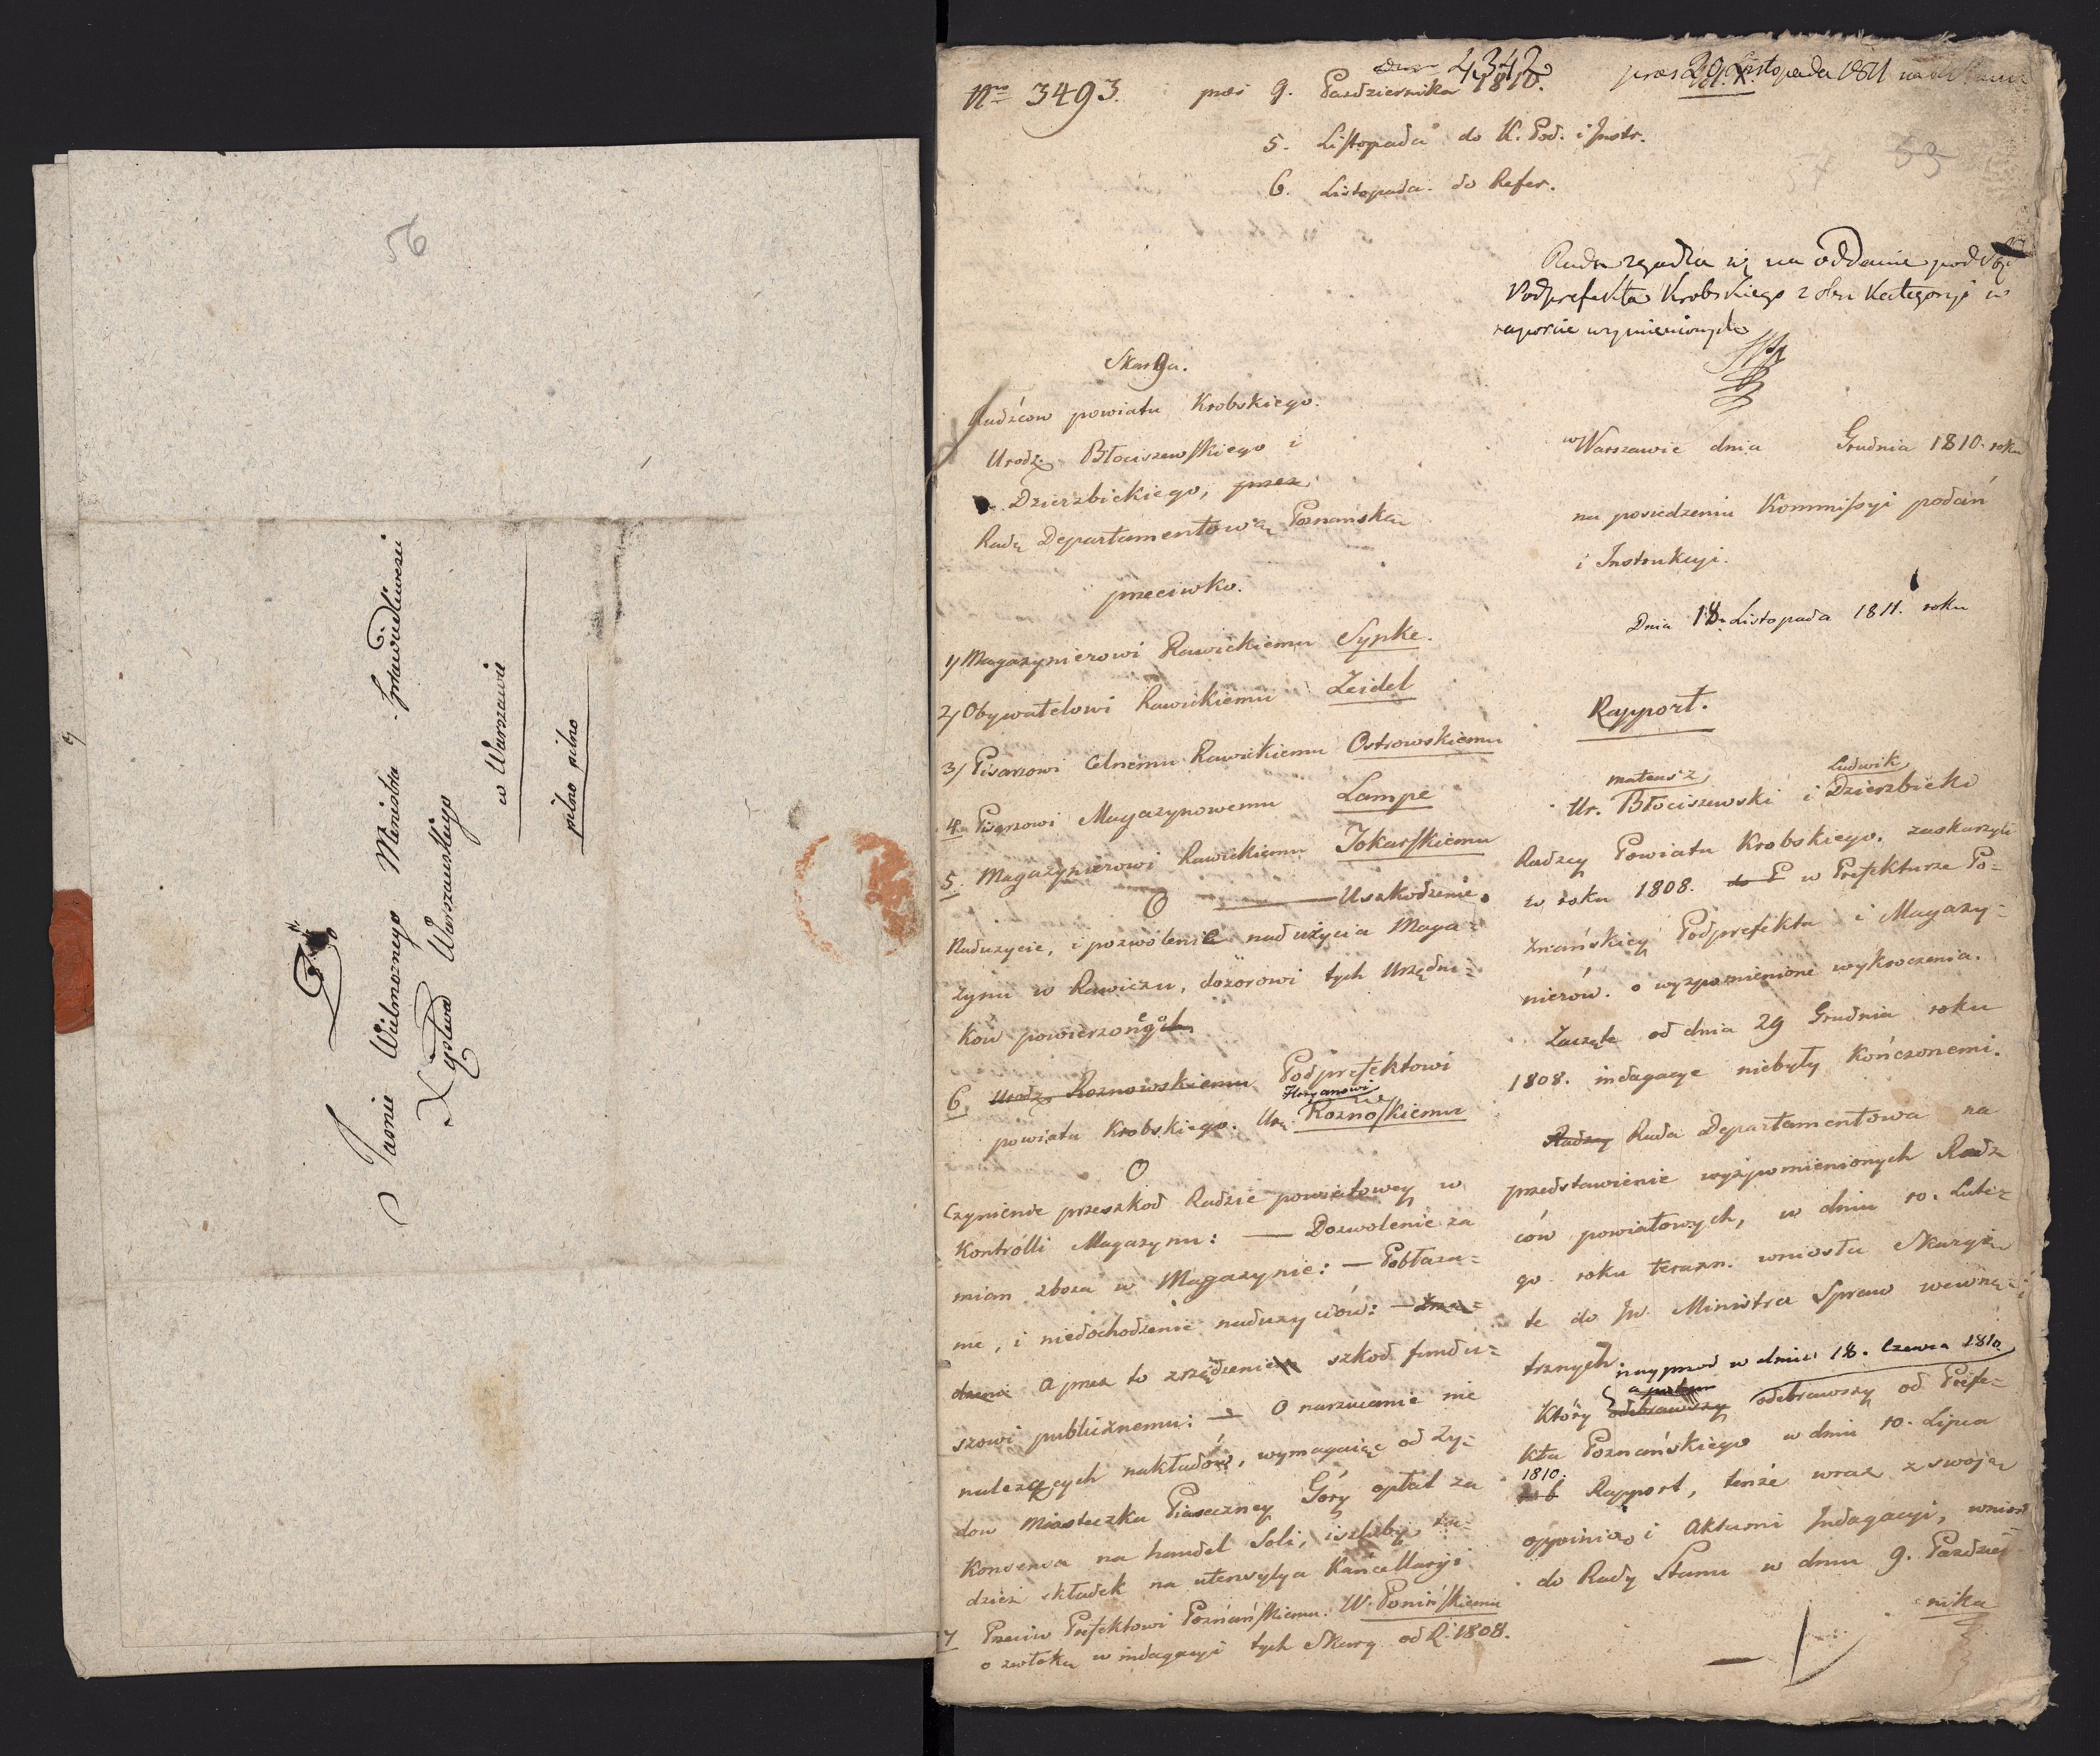 56
Jaśnie Wielmożnego Ministra Sprawiedliwości
Xięstwa Warszawskiego
w Warszawie
pilno pilno
Nro 3493. pres 9. Październka 1810.
4342
pres 29 Listopada 1811
5. Listopada do K. Pod. i Instr.
6. Listopada do Refer.
53
Rada zgadza się na oddanie pod sąd
Podprefekta Krobskiego z obu kategoryi w
raporcie wymienionych
Skarga.
Radźcow powiatu Krobskiego.
Urodz. Błociszewskiego i
Dzierzbickiego, przez
Radę Departamentową Poznanską
przeciwko.
1) Magazynierowi Rawickiemu Sypke.
2) Obywatelowi Rawickiemu Zeidel
3) Pisarzowi Celnemu Rawickiemu Ostrowskiemu
4. Pisarzowi Magazynowemu Lampe
5. Magazynierowi Rawickiemu Tokarskiemu
O Uszkodzenie
Nadużycie, i pozwolenie nadużycia Maga=
zynu w Rawiczu, dozorowi tych Urzędni=
kow powierzonego
6. Urodz. Roznowskiemu Podprefektowi
Floryanowi
powiatu Krobskiego. Ur. Roznoskiemu
O
Czynienie przeszkod Radzie powiatowey w
Kontrolli Magazynu: — Dozwolenie za
mian zboza w Magazynie: — Pobłaza=
nie, i niedochodzenie nadużyciów: —
a przez to zrządzenie szkod fundu=
szowi publicznemu: — O narzucanie nie
nalezących nakładów, wymagaiąc od Ży=
dow Miasteczka Piaseczney Góry opłat za
Konsensa na handel Soli,
dzież składek na utensylya Kancellaryi
7 Przeciw Prefektowi Poznańskiemu W. Ponińskiemu
o zwłokę w indagacyi tych Skarg od R. 1808.
w Warszawie dnia Grudnia 1810. roku
na posiedzeniu Kommissyi podań
i Instrukcyi.
Dnia 18. Listopada 1811. roku
Rapport.
Mateusz Ludwik
Ur. Błociszewski i Dzierzbicki
Radzcy Powiatu Krobskiego, zaskarzyli
w roku 1808. do P w Prefekturze Po=
znańskiey Podprefekta i Magazy=
nierów o wyzpomienione wykroczenia.
Zaczęte od dnia 29 Grudnia roku
1808. indagacye niebyły kończonemi.
Radzcy Rada Departamentowa na
przedstawienie wyżpomienionych Radz
ców powiatowych, w dniu 10. Lute=
go roku terazn. wniosła Skargi
te do Jw. Ministra Spraw wewnę=
trznych.
nayprzod w dniu 18. Czerwca 1810
a potem
Który odebrawszy odebrawszy od Prefe=
kta Poznańskiego w dniu 10. Lipca
1810.
Rapport, tenże wraz z swoją
oppinią i Aktami Indagacyi, wniosł
do Rady Stanu w dniu 9. Paździer
nika